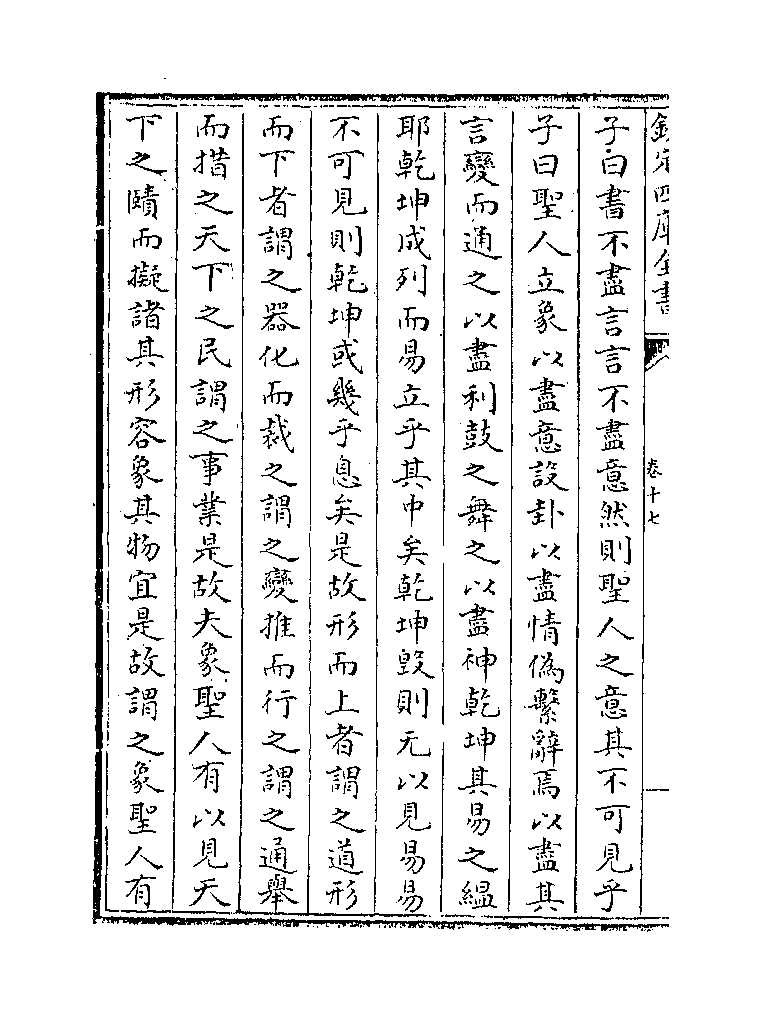 欽定四庫全書
卷十七
子曰書不盡言言不盡意然則聖人之意其不可見乎
子曰聖人立象以盡意設卦以盡情偽繫辭焉以盡其
言變而通之以盡利鼓之舞之以盡神乾坤其易之緼
耶乾坤成列而易立乎其中矣乾坤毀則无以見易易
不可見則乾坤或幾乎息矣是故形而上者謂之道形
而下者謂之器化而裁之謂之變推而行之謂之通舉
而措之天下之民謂之事業是故夫象聖人有以見天
下之賾而擬諸其形容象其物宜是故謂之象聖人有